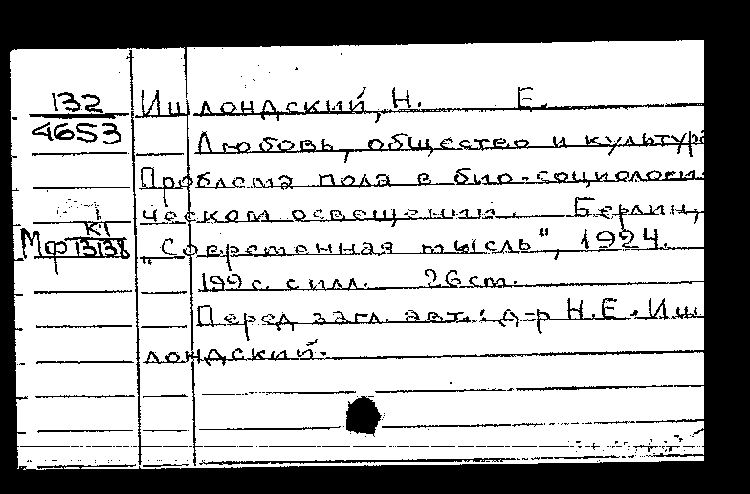 132
4653
Ишлондский, Н. Е.
Любовь, общество и культура
Проблема пола в био-социологи-
ческом освещении. Берлин,
К1
Мф 13138
„Современная мысль", 1924.
199 с. с илл. 26 cm.
Перед загл. авт.: д-р Н.Е. Иш
лондский.